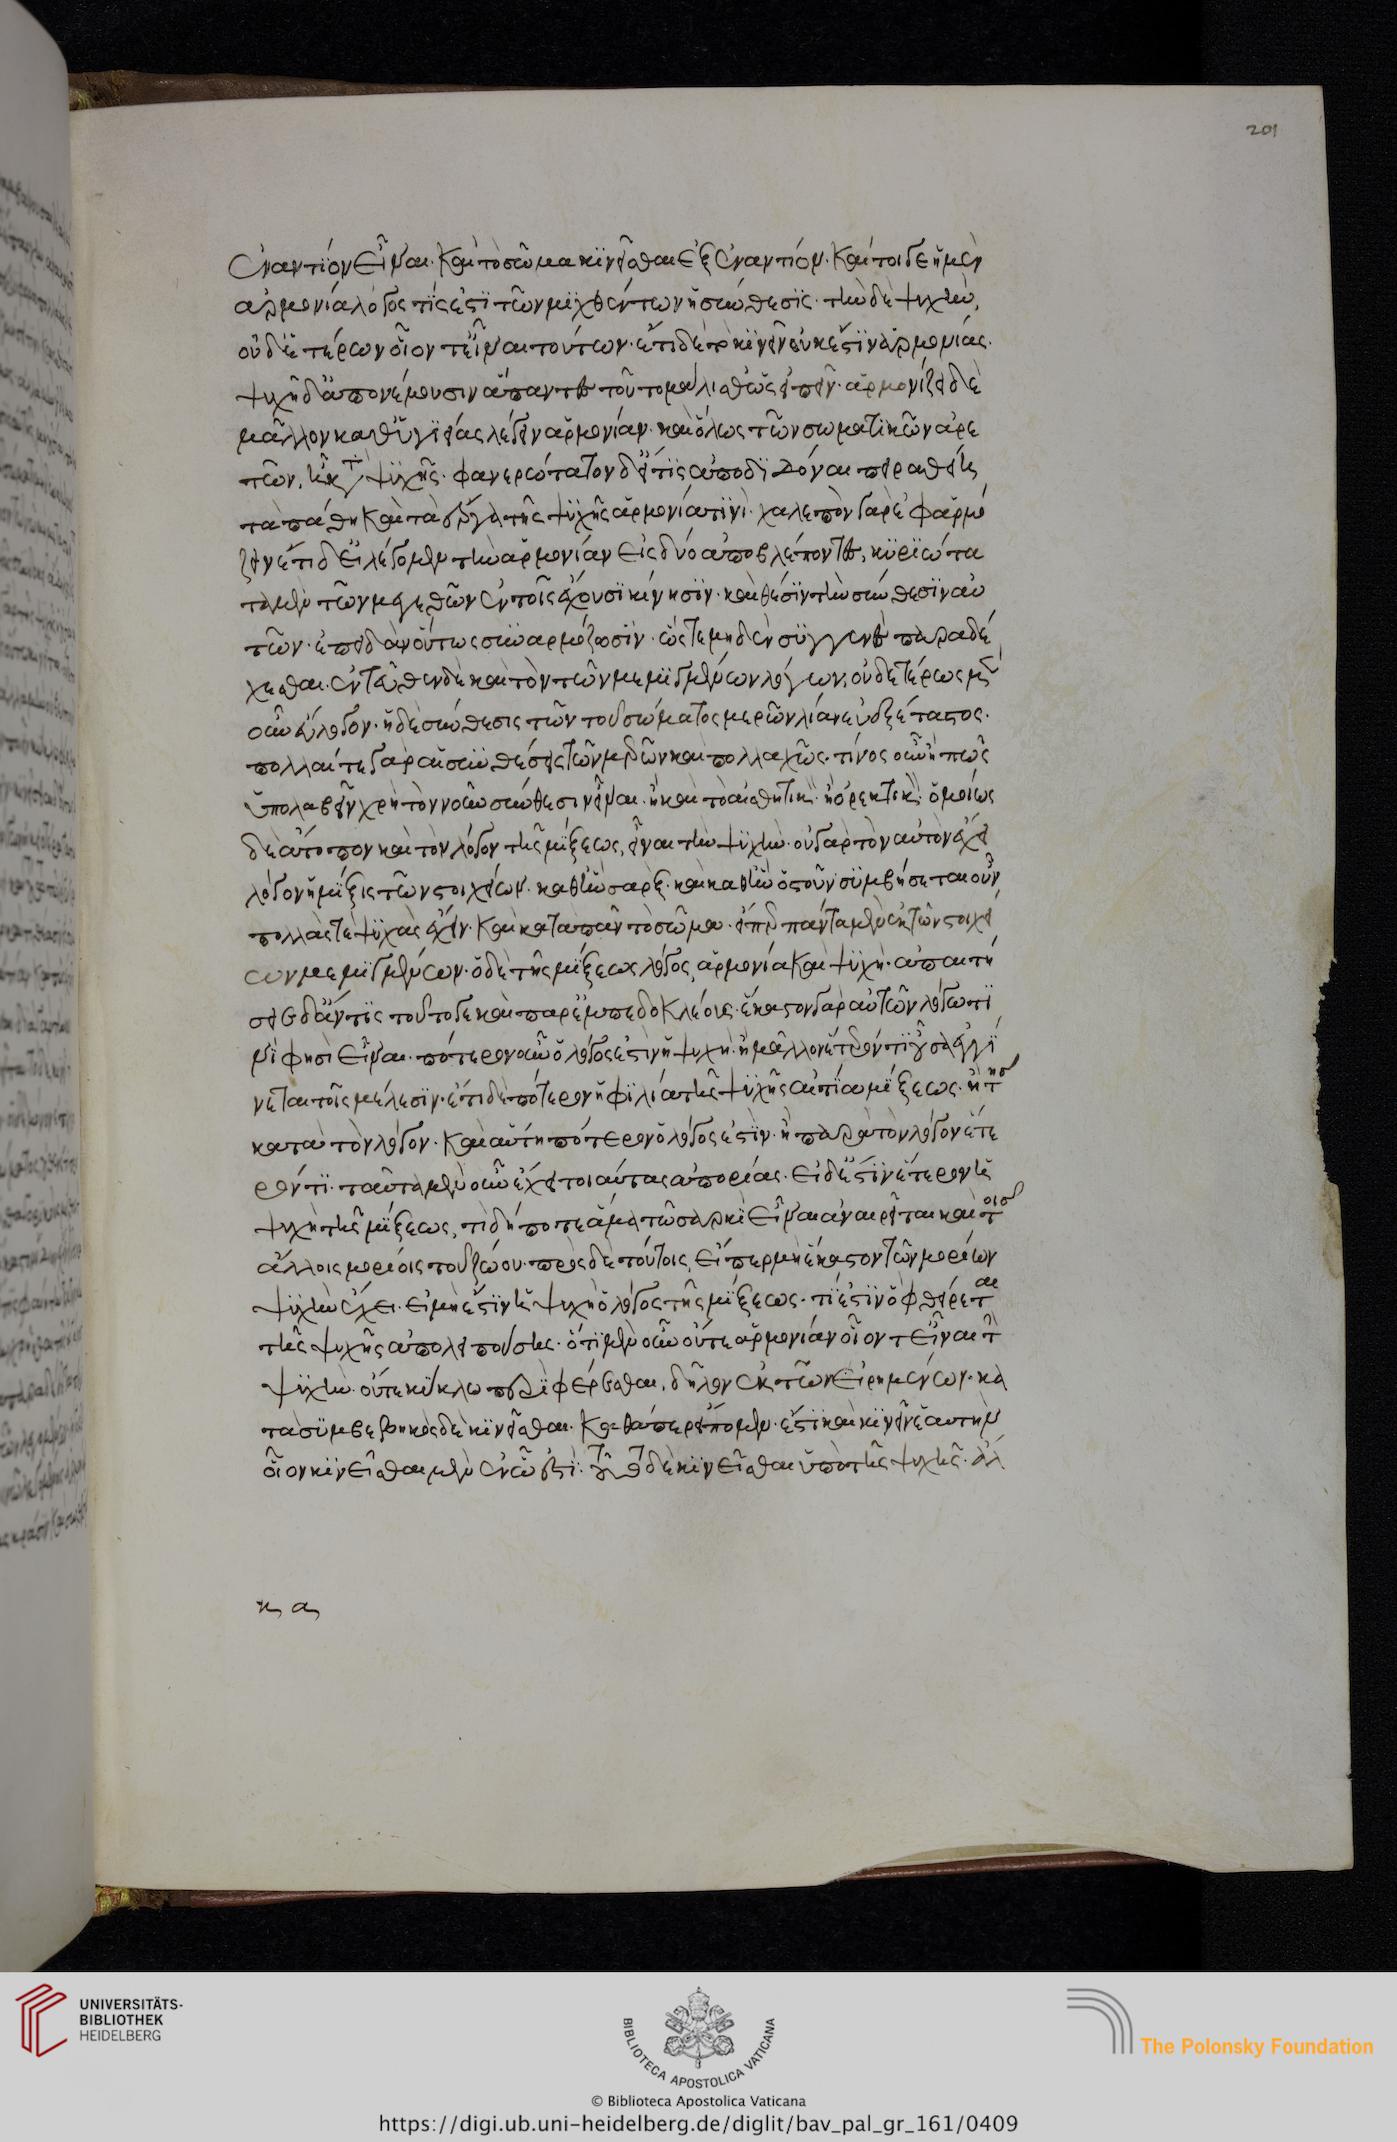 201
ἐναντίον εἶναι· καὶ τὸ σῶμα κινεῖσθαι ἐξ ἐναντίων· καίτοι γε ἡ μὲν
ἁρμονία λόγος τίς ἐστι τῶν μιχθέντων ἢ σύνθεσις· τὴν δὲ ψυχὴν,
οὐδέτερον οἷόν τ εἶναι τούτων· ἔτι δὲ τὸ κινεῖν οὐκ ἔστιν ἁρμονίας·
ψυχῇ δ ἀπονέμουσιν ἅπαντες τοῦτο μάλισθ ὡς εἰπεῖν· ἁρμονίζει δὲ
μᾶλλον καθ ὑγιείας λέγειν ἁρμονίαν· καὶ ὅλως τῶν σωματικῶν ἀρε
τῶν, ἢ κ τ ψυχῆς· φανερώτατον δ εἴ τις ἀποδιδόναι πειραθείη
τὰ πάθη καὶ τὰ ἔργα τῆς ψυχῆς ἁρμονία τινὶ· χαλεπὸν γὰρ ἐφαρμό
ζειν· ἔτι δ εἰ λέγομεν τὴν ἁρμονίαν εἰς δύο ἀποβλέποντες, κυριώτα
τα μὲν τῶν μεγεθῶν ἐν τοῖς ἔχουσι κίνησιν· καὶ θέσιν τὴν σύνθεσιν αὐ
τῶν· ἐπειδὰν οὕτως συναρμόζωσιν· ὥστε μηδὲν συγγενὲς παραδέ
χεσθαι· ἐντεῦθεν δὲ καὶ τὸν τῶν μεμιγμένων λόγων, οὐδετέρως μὲν
οὖν εὔλογον· ἡ δὲ σύνθεσις τῶν τοῦ σώματος μερῶν λίαν εὐεξέταστος·
πολλαί τε γὰρ αἱ συνθέσεις τῶν μερῶν καὶ πολλαχῶς· τίνος οὖν ἢ πῶς
ὑπολαβεῖν χρὴ τὸν νοῦν σύνθεσιν εἶναι· ἢ καὶ τὸ αἰσθητικὸν· ἢ ὀρεκτικὸν· ὁμοίως
δὲ ἄτοπον καὶ τὸν λόγον τῆς μίξεως, εἶναι τὴν ψυχὴν· οὐ γὰρ τὸν αὐτὸν ἔχει
λόγον ἡ μίξις τῶν στοιχείων· καθ ἣν σὰρξ· καὶ καθ ἣν ὀστοῦν συμβήσεται οὖν
πολλάς τε ψυχὰς ἔχειν· καὶ κατὰ πᾶν τὸ σῶμα· εἴπερ πάντα μὲν ἐκ τῶν στοιχεί
ων μεμιγμένων· ὁ δὲ τῆς μίξεως λόγος, ἁρμονία καὶ ψυχὴ· ἀπαιτή
σειε δ ἄν τις τοῦτό γε καὶ παρ ἐμπεδοκλέους· ἕκαστον γὰρ αὐτῶν λόγω τι
νί φησι εἶναι· πότερον οὖν ὁ λόγος ἐστὶν ἡ ψυχὴ· ἢ μᾶλλον ἕτερόν τι οὖσα ἐγγί
νεται τοῖς μέλεσιν· ἔτι δὲ πότερον ἡ φιλία τῆς ψυχῆς αἰτία μίξεως· ἢ τῆς
κατὰ τὸν λόγον· καὶ αὕτη πότερον ὁ λόγος ἐστὶν· ἢ παρὰ τὸν λόγον ἕτε
ρόν τι· ταῦτα μὲν οὖν ἔχει τοιαύτας ἀπορίας· εἰ δ ἔστιν ἕτερον ἡ
ψυχὴ τῆς μίξεως, τί δή ποτε ἅμα τῶ σαρκὶ εἶναι ἀναιρεῖται καὶ τοῖς
ἄλλοις μορίοις τοῦ ζώου· πρὸς δὲ τούτοις, εἴπερ μὴ ἕκαστον τῶν μορίων
ψυχὴν ἔχει· εἰ μὴ ἔστιν ἡ ψυχὴ ὁ λόγος τῆς μίξεως· τί ἐστιν ὃ φθείρεται
τῆς ψυχῆς ἀπολειπούσης· ὅτι μὲν οὖν οὔτε ἁρμονίαν οἷόν τ εἶναι τὴν
ψυχὴν· οὔτε κύκλω περιφέρεσθαι, δῆλον ἐκ τῶν εἰρημένων· κα
τὰ συμβεβηκὸς δὲ κινεῖσθαι· καθάπερ εἴπομεν· ἔστι καὶ κινεῖν ἑαυτὴν
οἷον κινεῖσθαι μὲν ἐν ᾧ ἐστὶ· τοῦτο δὲ κινεῖσθαι ὑπὸ τῆς ψυχῆς· ἀλ
κ α
UNIVERSITÄTS-
BIBLIOTHEK
HEIDELBERG
BIBLIOTECA APOSTOLICA VATICANA
The Polonsky Foundation
© Biblioteca Apostolica Vaticana
https://digi.ub.uni-heidelberg.de/diglit/bav_pal_gr_161/0409